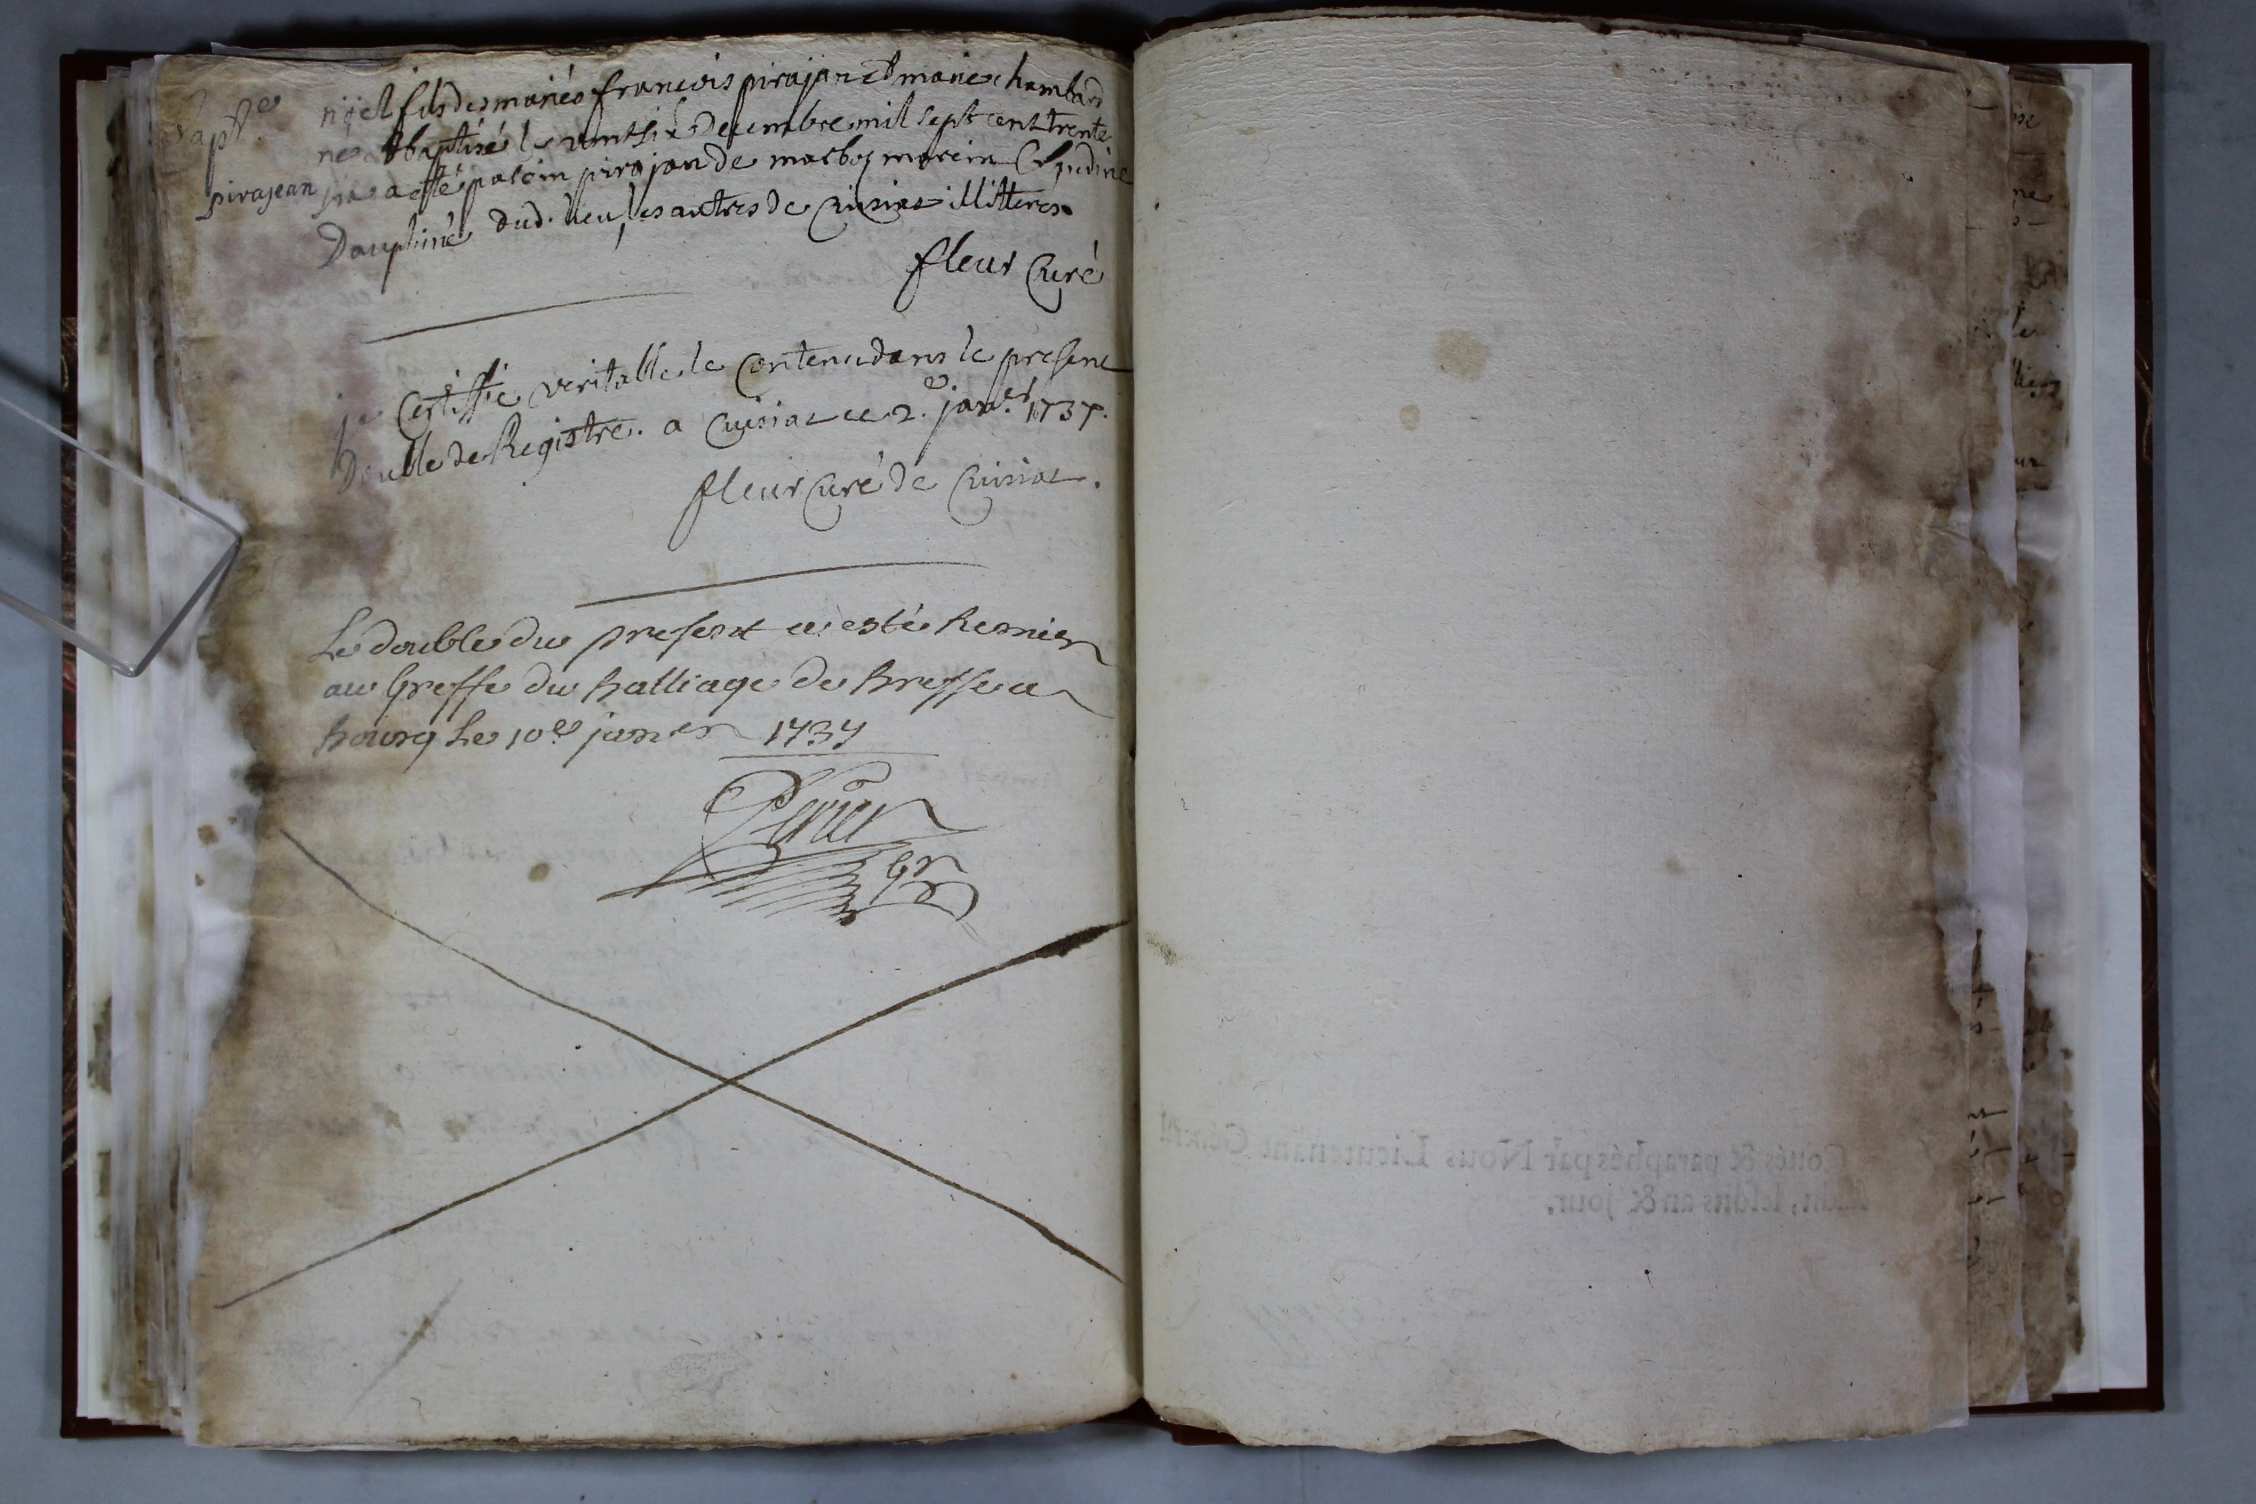 Bap.e
pirajean
noel fils des mariés francois pirajan et marie chambard
né et baptisé le vintsix decembre mil sept cent trente
six a esté parain pirajan de marboz marein Claudine
Dauphiné dud. lieu, les autres de Cuisiat illitteres
fleur Curé
je Certiffie veritable le Contenu dans le present
Double de Registre. a Cuisiat ce 2.e janer 1737.
fleur Curé de Cuisiat.
Le double du present a esté Remis
au Greffe du Balliage de Bresse a
Bourg Le 10e janer 1737
Gr
Cottés & paraphés par Nous Lieutenant Général
susdit, lesdits an & jour.